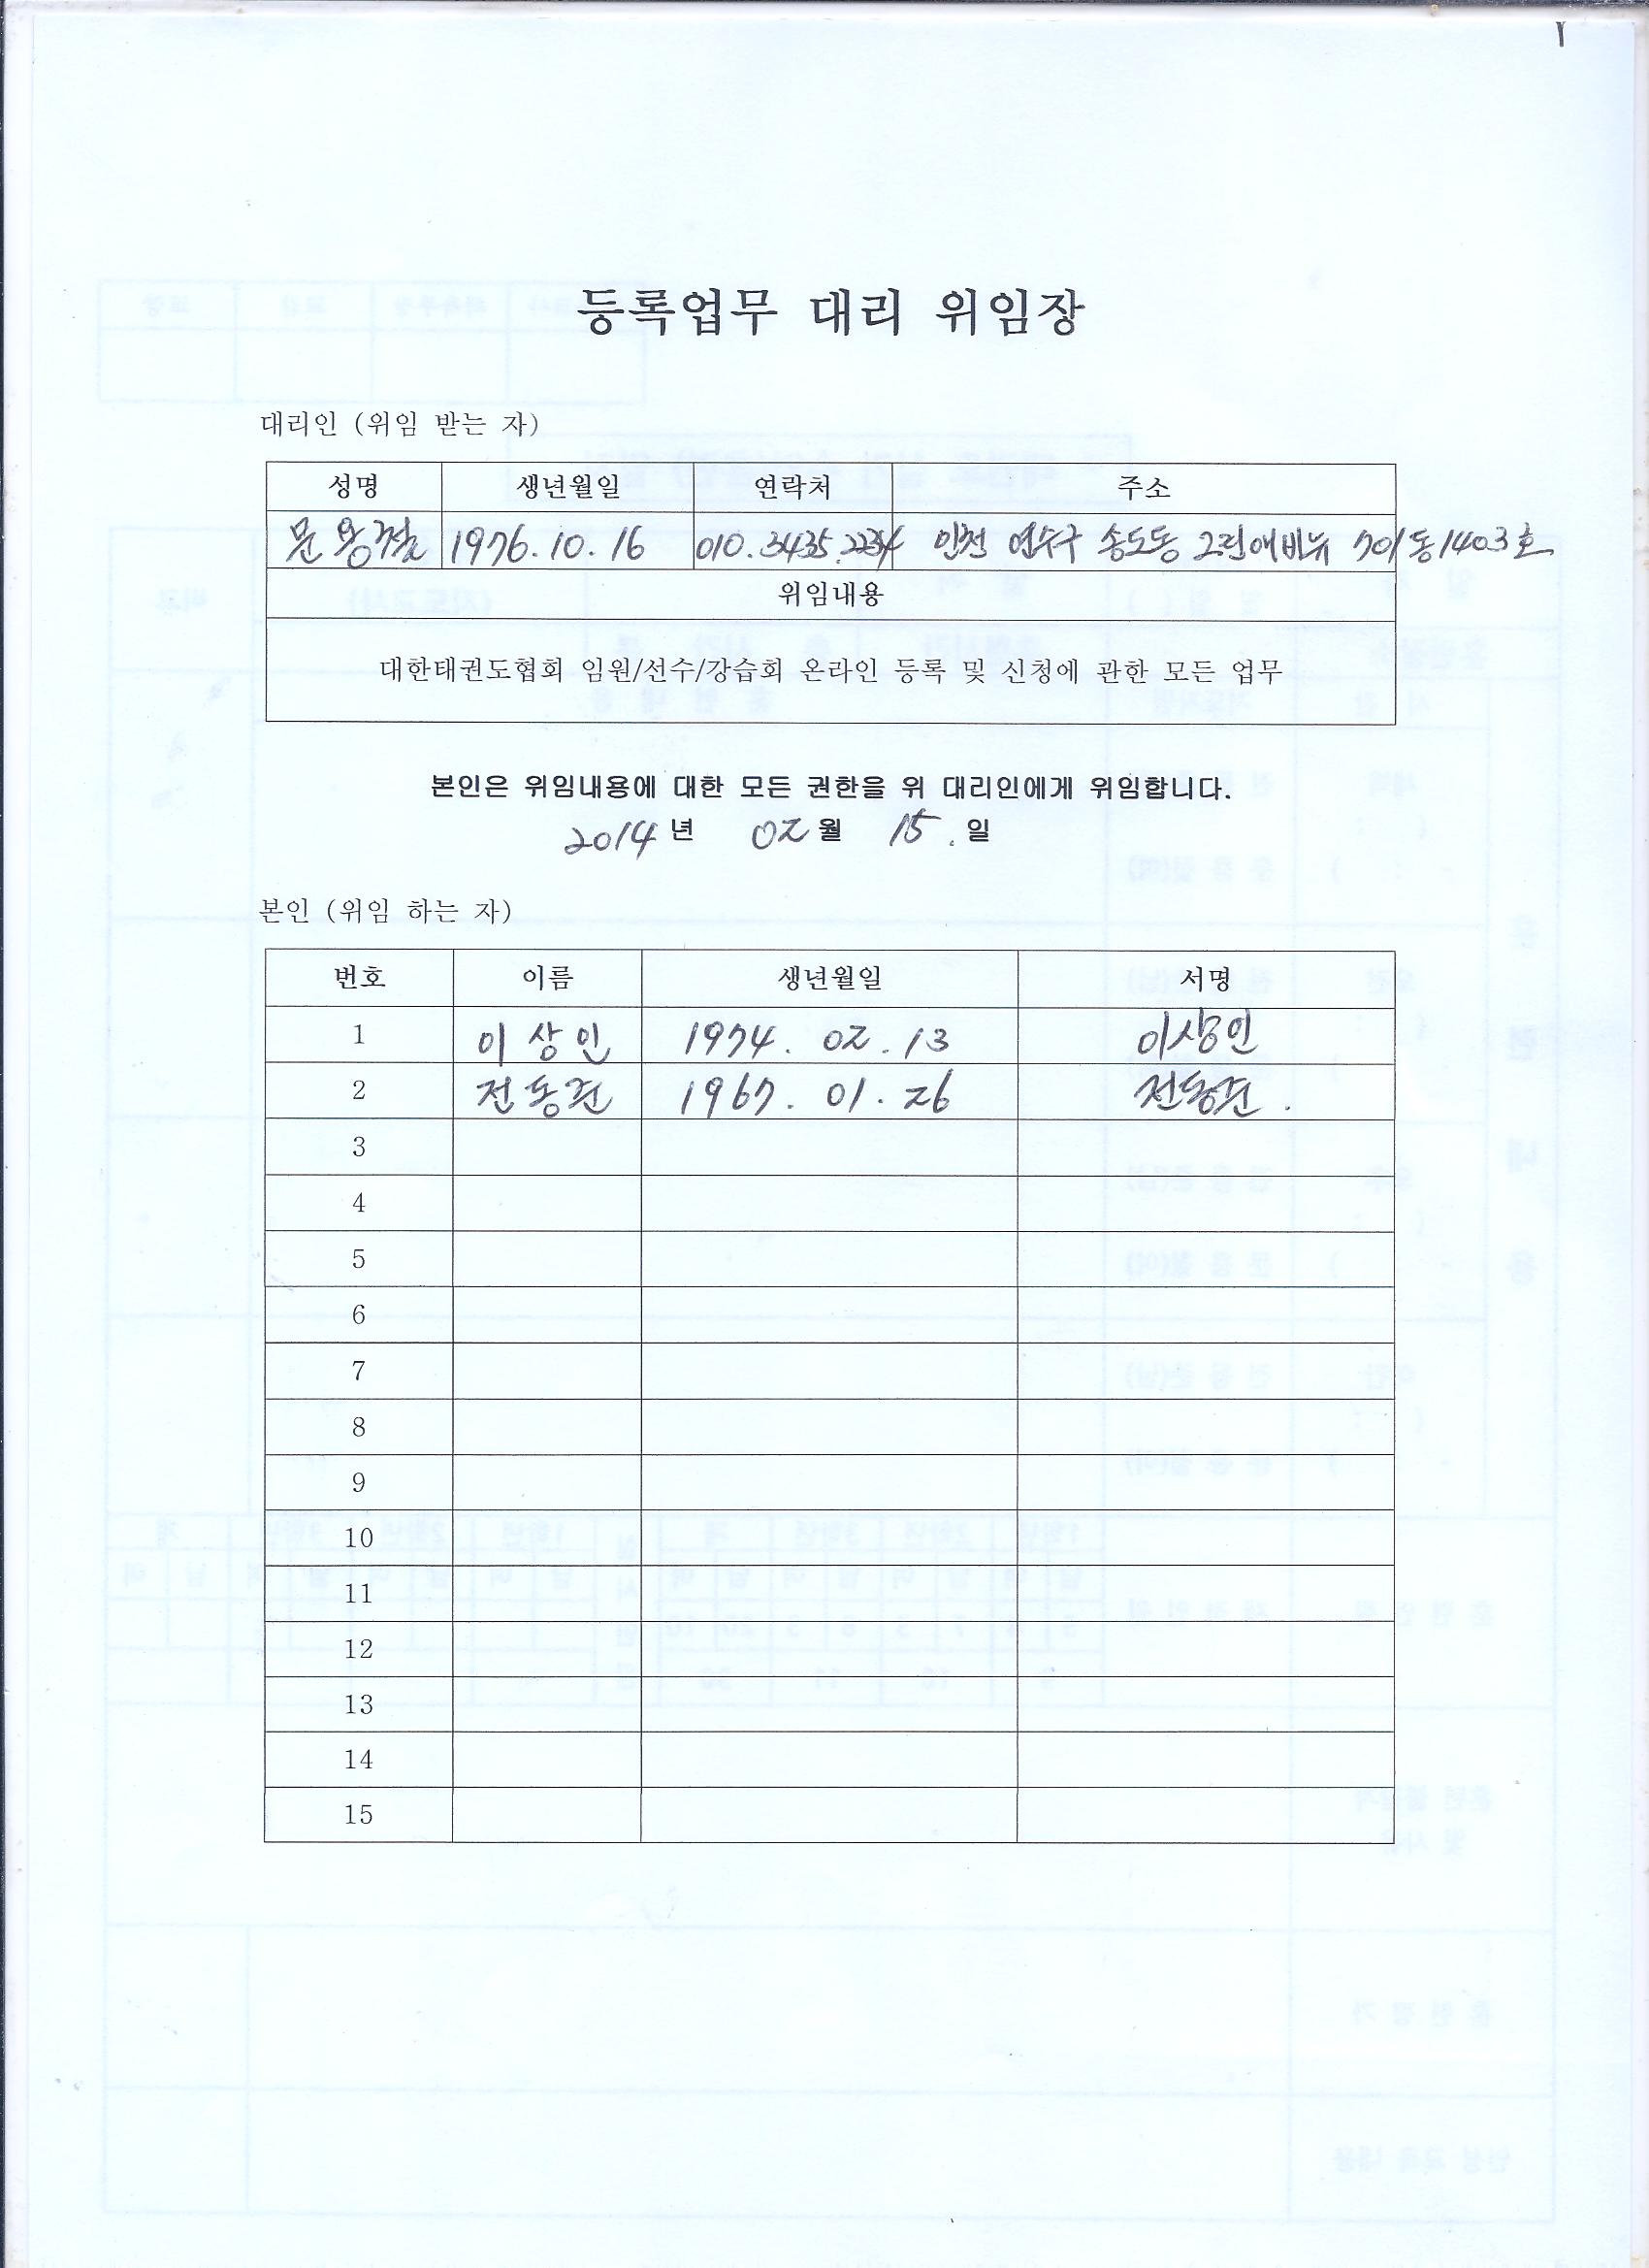 등록업무 대리 위임장
대리인 (위임 받는 자)
성명 생년월일 연락처 주소
문 1976.10.16 010.3435. 인천 연수구 송도동 그린애비뉴 701동1403호
위임내용
대한태권도협회 임원/선수/강습회 온라인 등록 및 신청에 관한 모든 업무
본인은 위임내용에 대한 모든 권한을 위 대리인에게 위임합니다.
2014년 02월 15.일
본인 (위임 하는 자)
번호 이름 생년월일 서명
1 이상인 1974. 02. 13 이상인
2 전동준 1967. 01. 26 전동준.
3
4
5
6
7
8
9
10
11
12
13
14
15